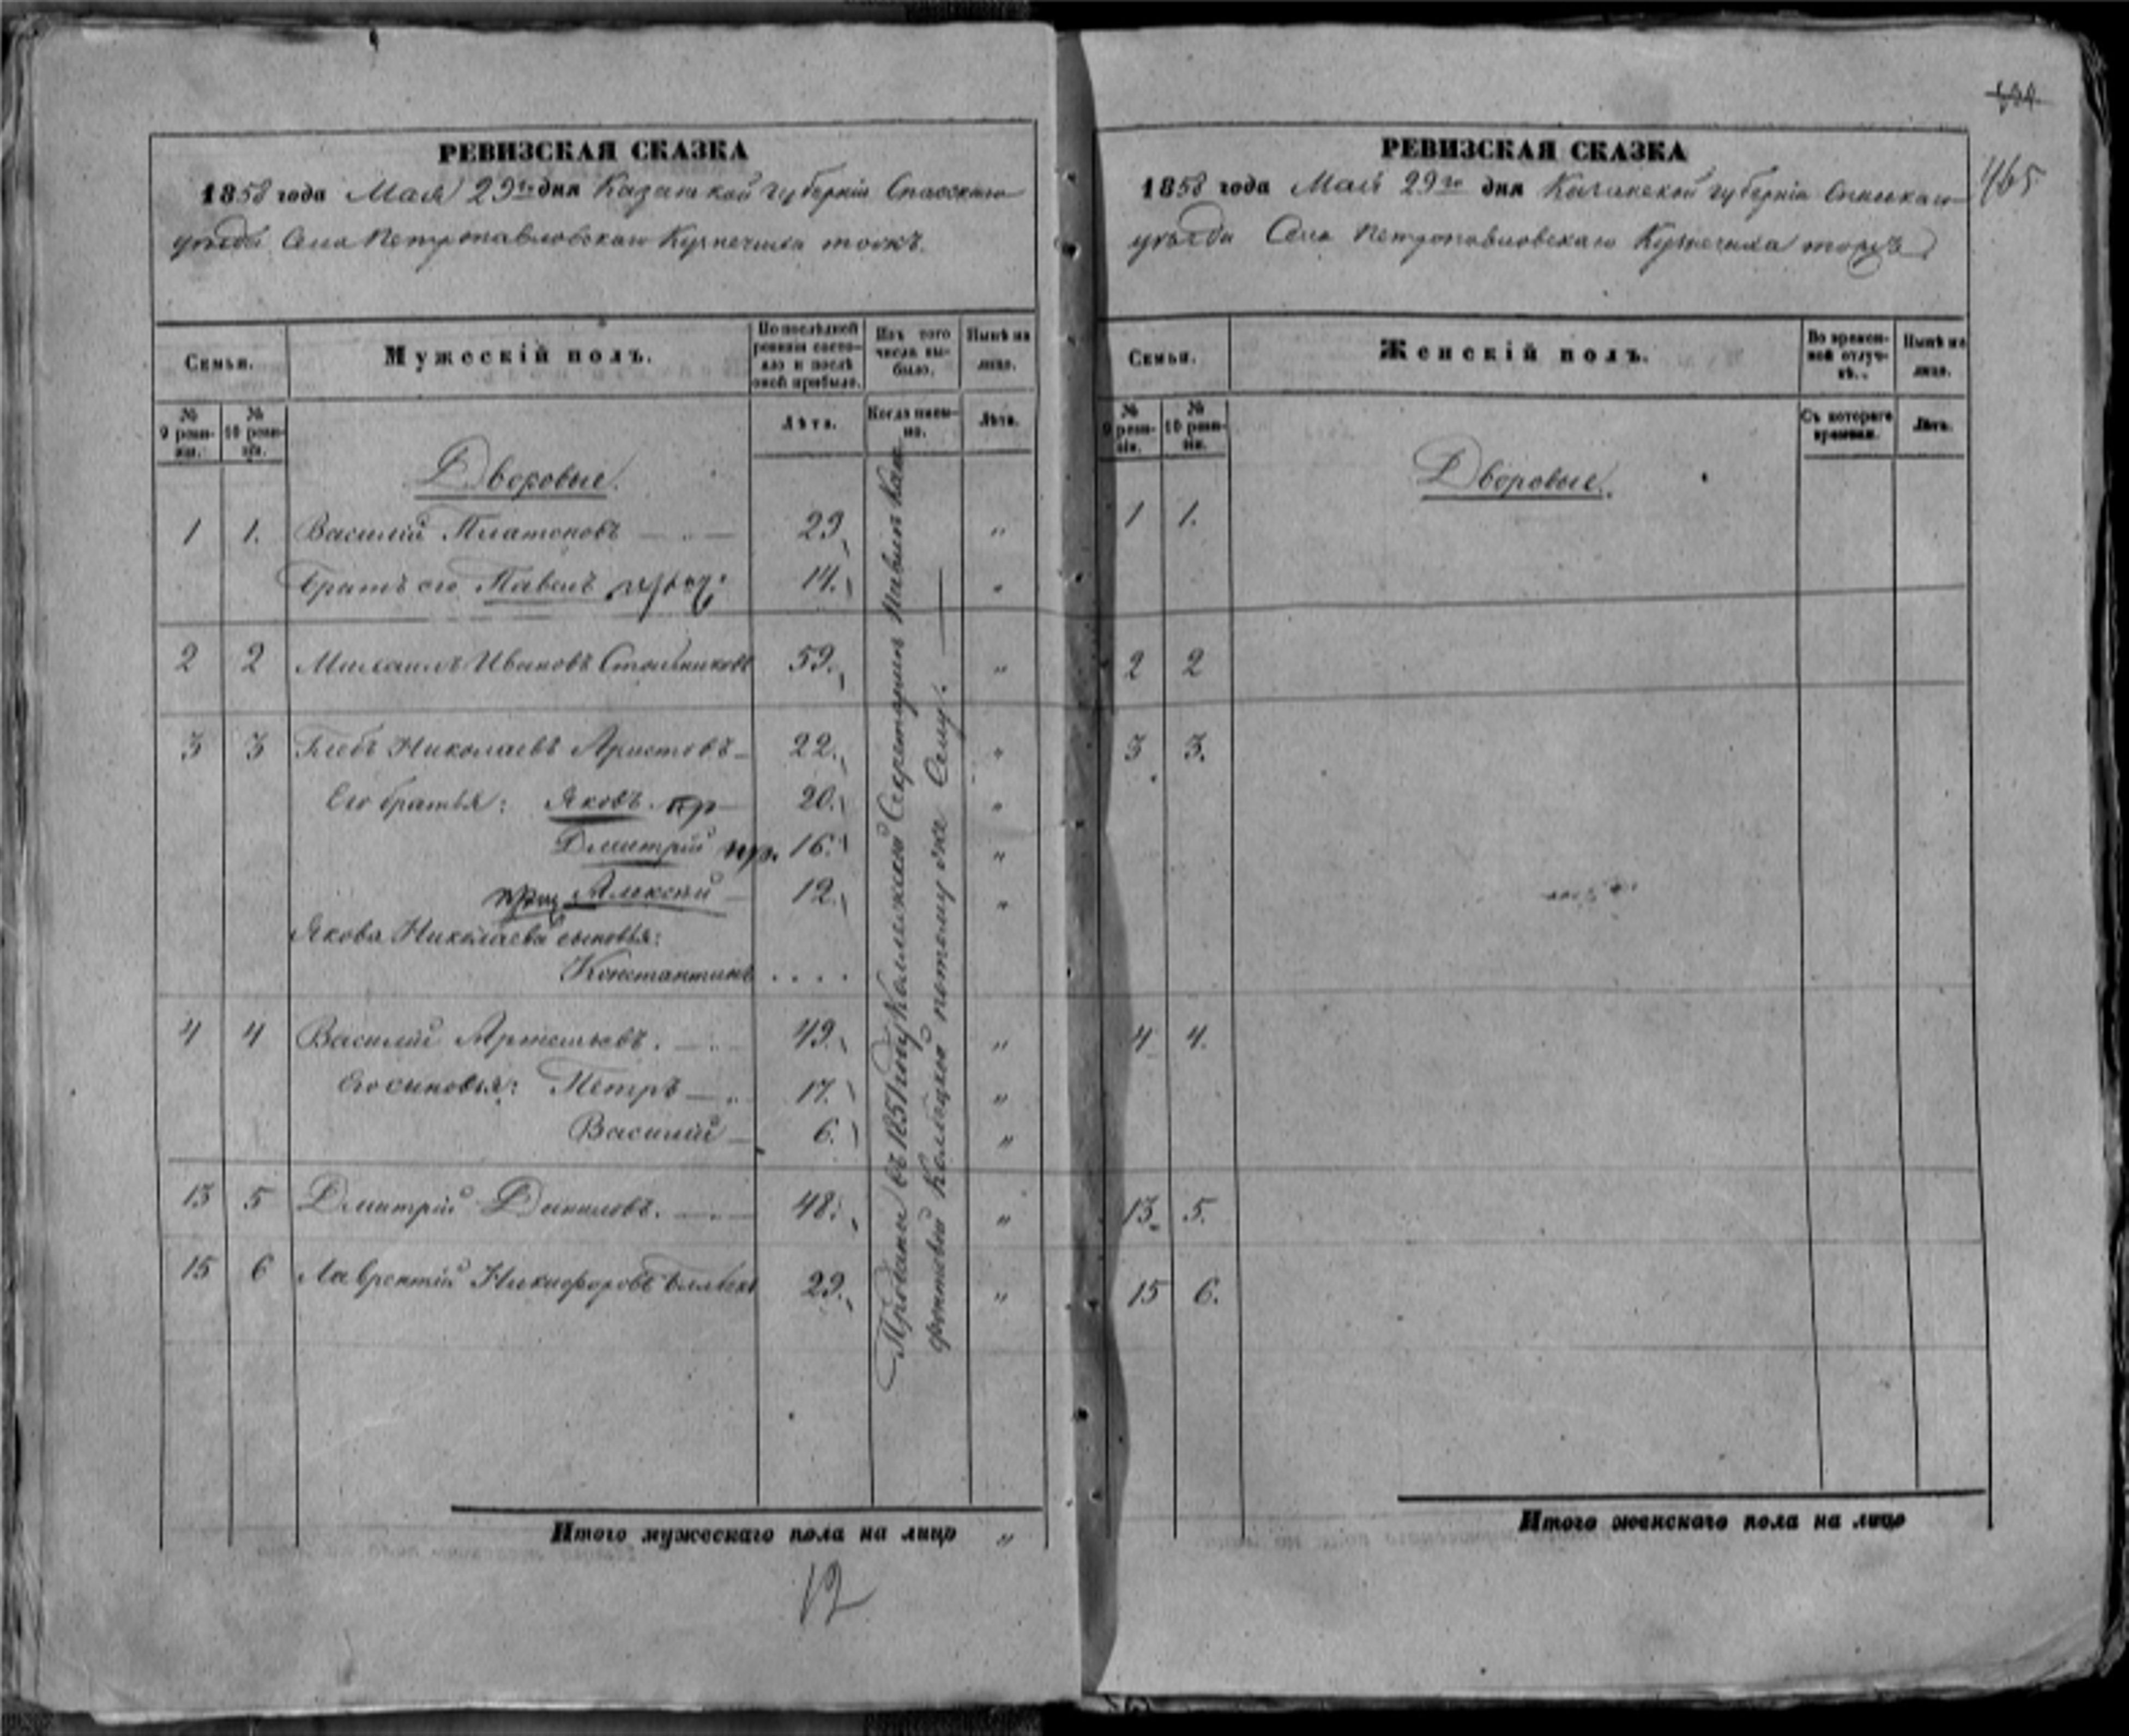 РЕВИЗСКАЯ СКАЗКА
1858 года Мая 29го дня Казанской губерніи Спасскаго
уѣзда Села Петропавловскаго Кузнечиха тожъ.
Семьи.
Мужескій полъ.
По послѣдней ревизіи состояло и послѣ оной прибыло.
Изъ того числа выбыло.
Нынѣ на лицо.
№ 9 ревизіи.
№ 10 ревизіи.
Лѣта.
Когда именно.
Лѣта.
Дворовые.
1 1. Василій Платоновъ 29 "
Братъ его Павелъ 14. "
2 2 Михаилъ Ивановъ Столбниковъ 59. "
3 3 Глебъ Николаевъ Аристовъ 22. "
Его братья: Яковъ. пр 20. "
Дмитрій пр. 16. "
Алексѣй 12. "
Якова Николаева сыновья:
Константинъ . . . .
4 4 Василій Артемьевъ. 49. "
Его сыновья: Петръ 17. "
Василій 6. "
13 5 Дмитрій Даниловъ. 48. "
15 6 Лаврентій Никифоровъ 29. "
Проданы въ 1851 году Коллежской Секретаршѣ
потому же Селу.
Итого мужескаго пола на лицо "
12
465
РЕВИЗСКАЯ СКАЗКА
1858 года Мая 29го дня Казанской губерніи Спасскаго
уѣзда Села Петропавловскаго Кузнечиха тожъ
Семьи.
Женскій полъ.
Во временной отлучкѣ.
Нынѣ на лицо.
№ 9 ревизіи.
№ 10 ревизіи.
Съ котораго времени.
Лѣта.
Дворовые.
1 1.
2 2
3 3.
4 4.
13 5.
15 6.
Итого женскаго пола на лицо